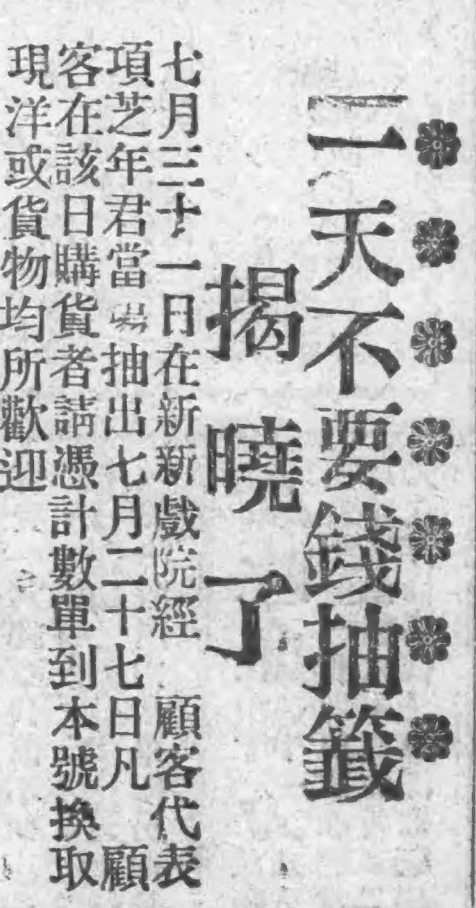 一天不要錢抽籤
揭曉了
七月三十一日在新新戲院經 顧客代表
項芝年君當場抽出七月二十七日凡 顧
客在該日購貨者請憑計數單到本號換取
現洋或貨物均所歡迎